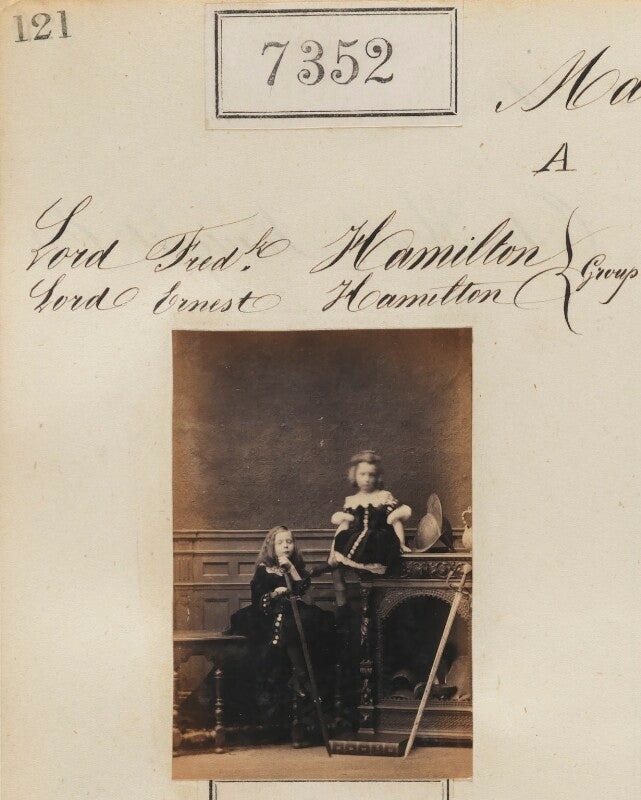 121
7352
A
Lord Fredk. Hamilton
Lord Ernest Hamilton
Group